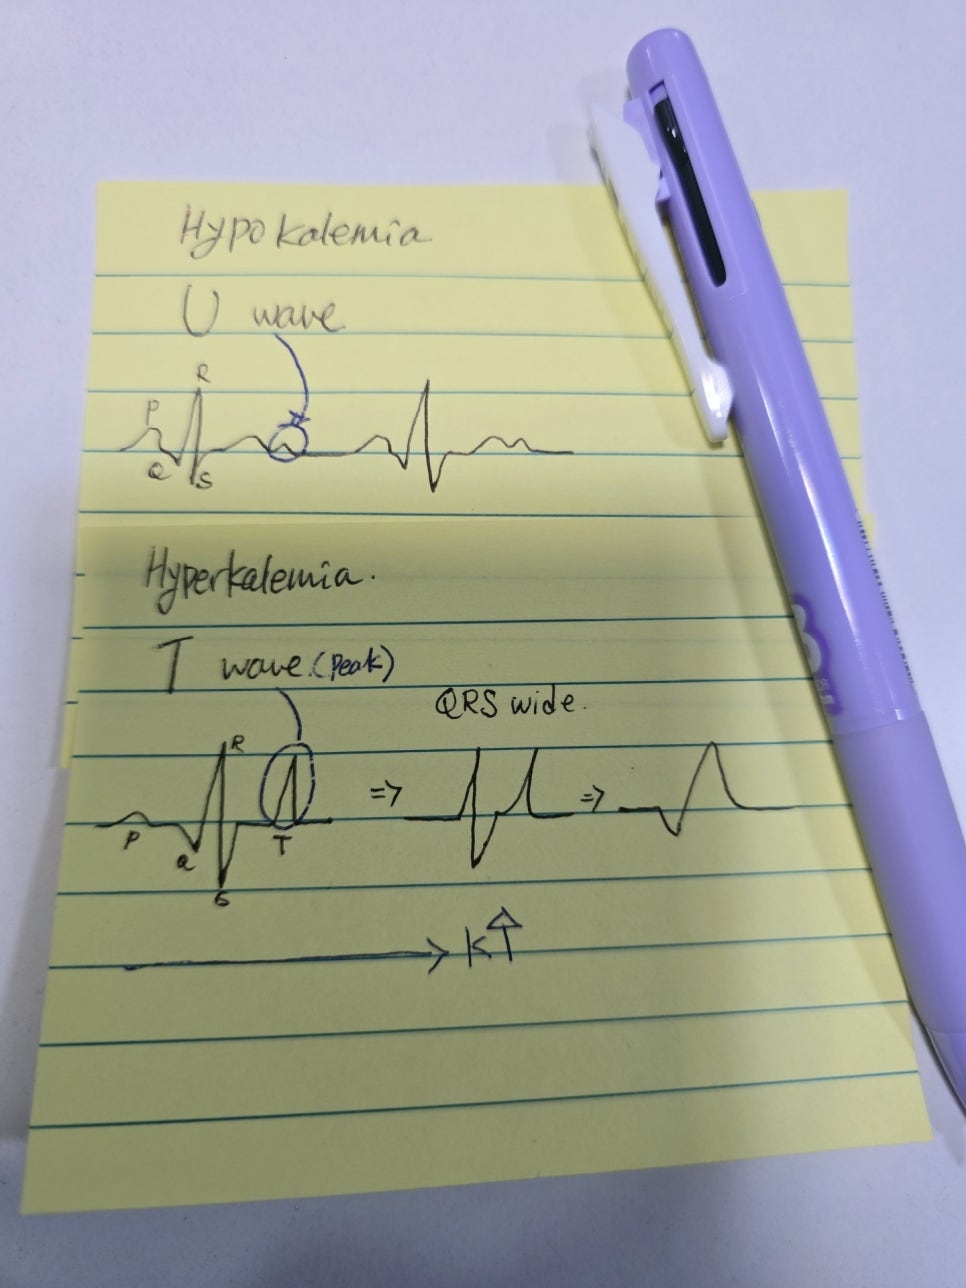 Hypokalemia
U wave
R
P
Q
S
Hyperkalemia.
T wave.(peak)
QRS wide.
R
P
Q
S
T
=> =>
K↑